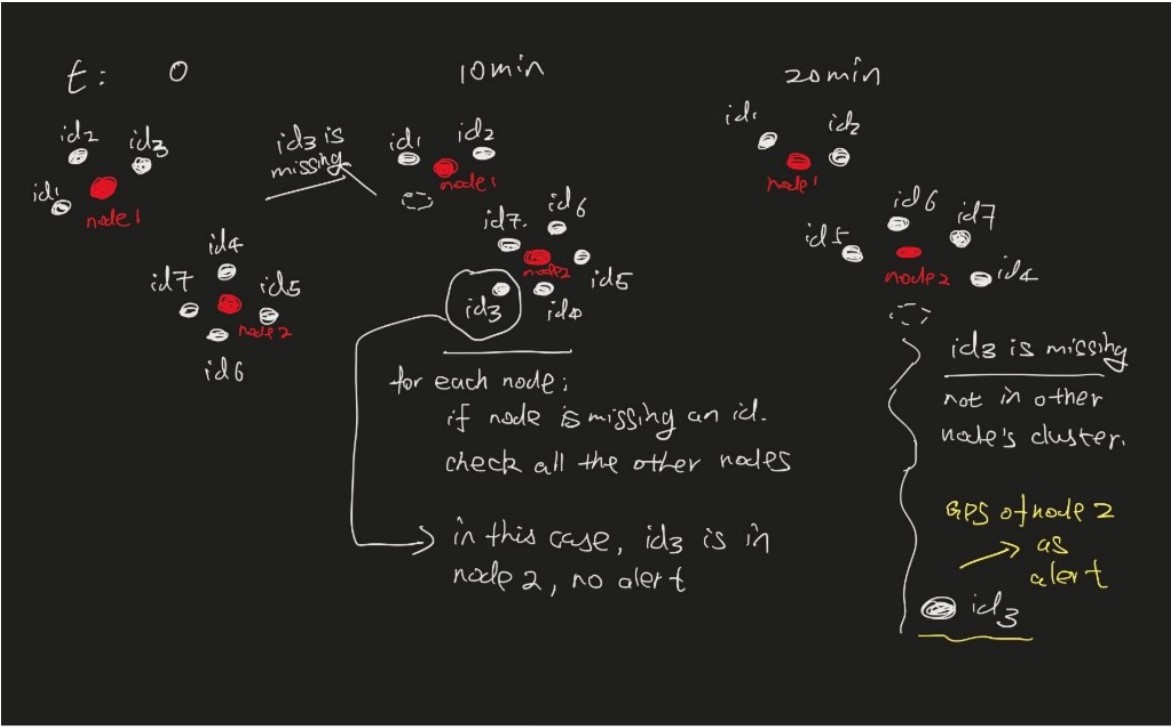 t: 0
10min
20min
id2
id3
id1
node1
id4
id7
id5
node2
id6
id3 is
missing
id1
id2
node1
id7.
id6
node2
id5
id3
id4
for each node;
if node is missing an id.
check all the other nodes
in this case, id3 is in
node 2, no alert
id1
id2
node1
id6
id7
id5
node2
id4
id3 is missing
not in other
node's cluster.
GPS of node 2
as
alert
id3